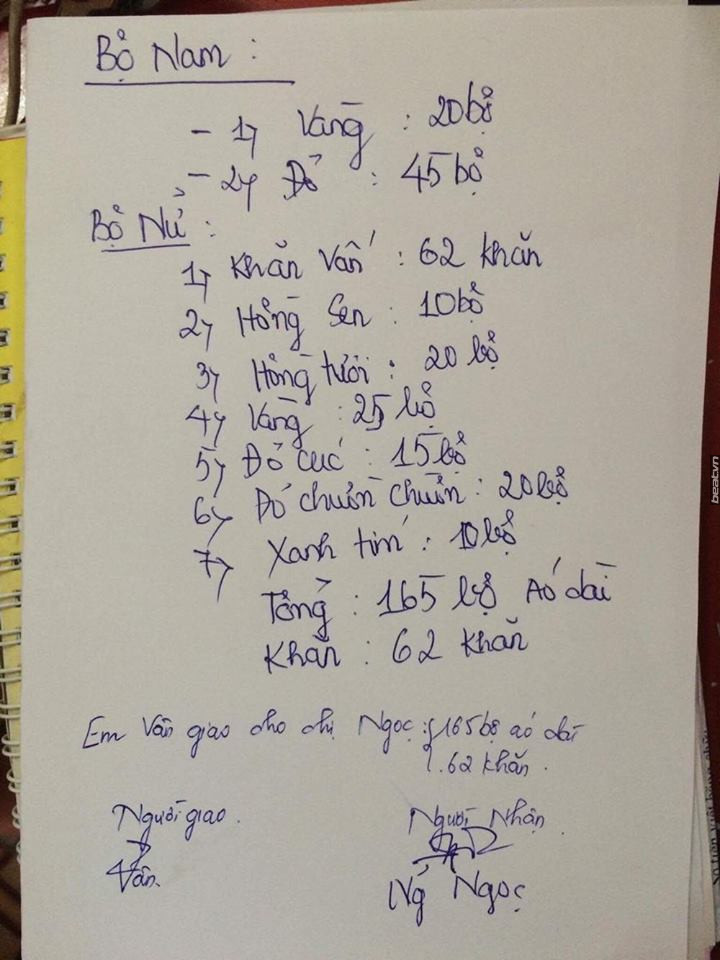 Bộ Nam :
- 1, Vàng : 20 bộ
- 2, Đỏ : 45 bộ
Bộ Nử :
1, Khăn Vấn : 62 khăn
2, Hồng Sen : 10 bộ
3, Hồng tươi : 20 bộ
4, Vàng : 25 bộ
5, Đỏ cúc : 15 bộ
6, Đỏ chuồn chuồn : 20 bộ
7, Xanh tím : 10 bộ
Tổng : 165 bộ Áo dài
Khăn : 62 khăn
Em Vân giao cho chị Ngọc : 165 bộ áo dài
. 62 khăn .
Người giao . Người Nhận .
Vân. Ngọc
beatvn